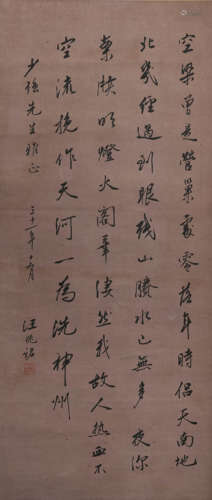 空梁曾是營巢處零落年時侶天南地
北幾經過到眼殘山賸水已無多 夜深
案牘明燈火閣筆淒然我故人熱血不
空流挽作天河一為洗神州
先生雅正 三十一年 月 汪兆銘